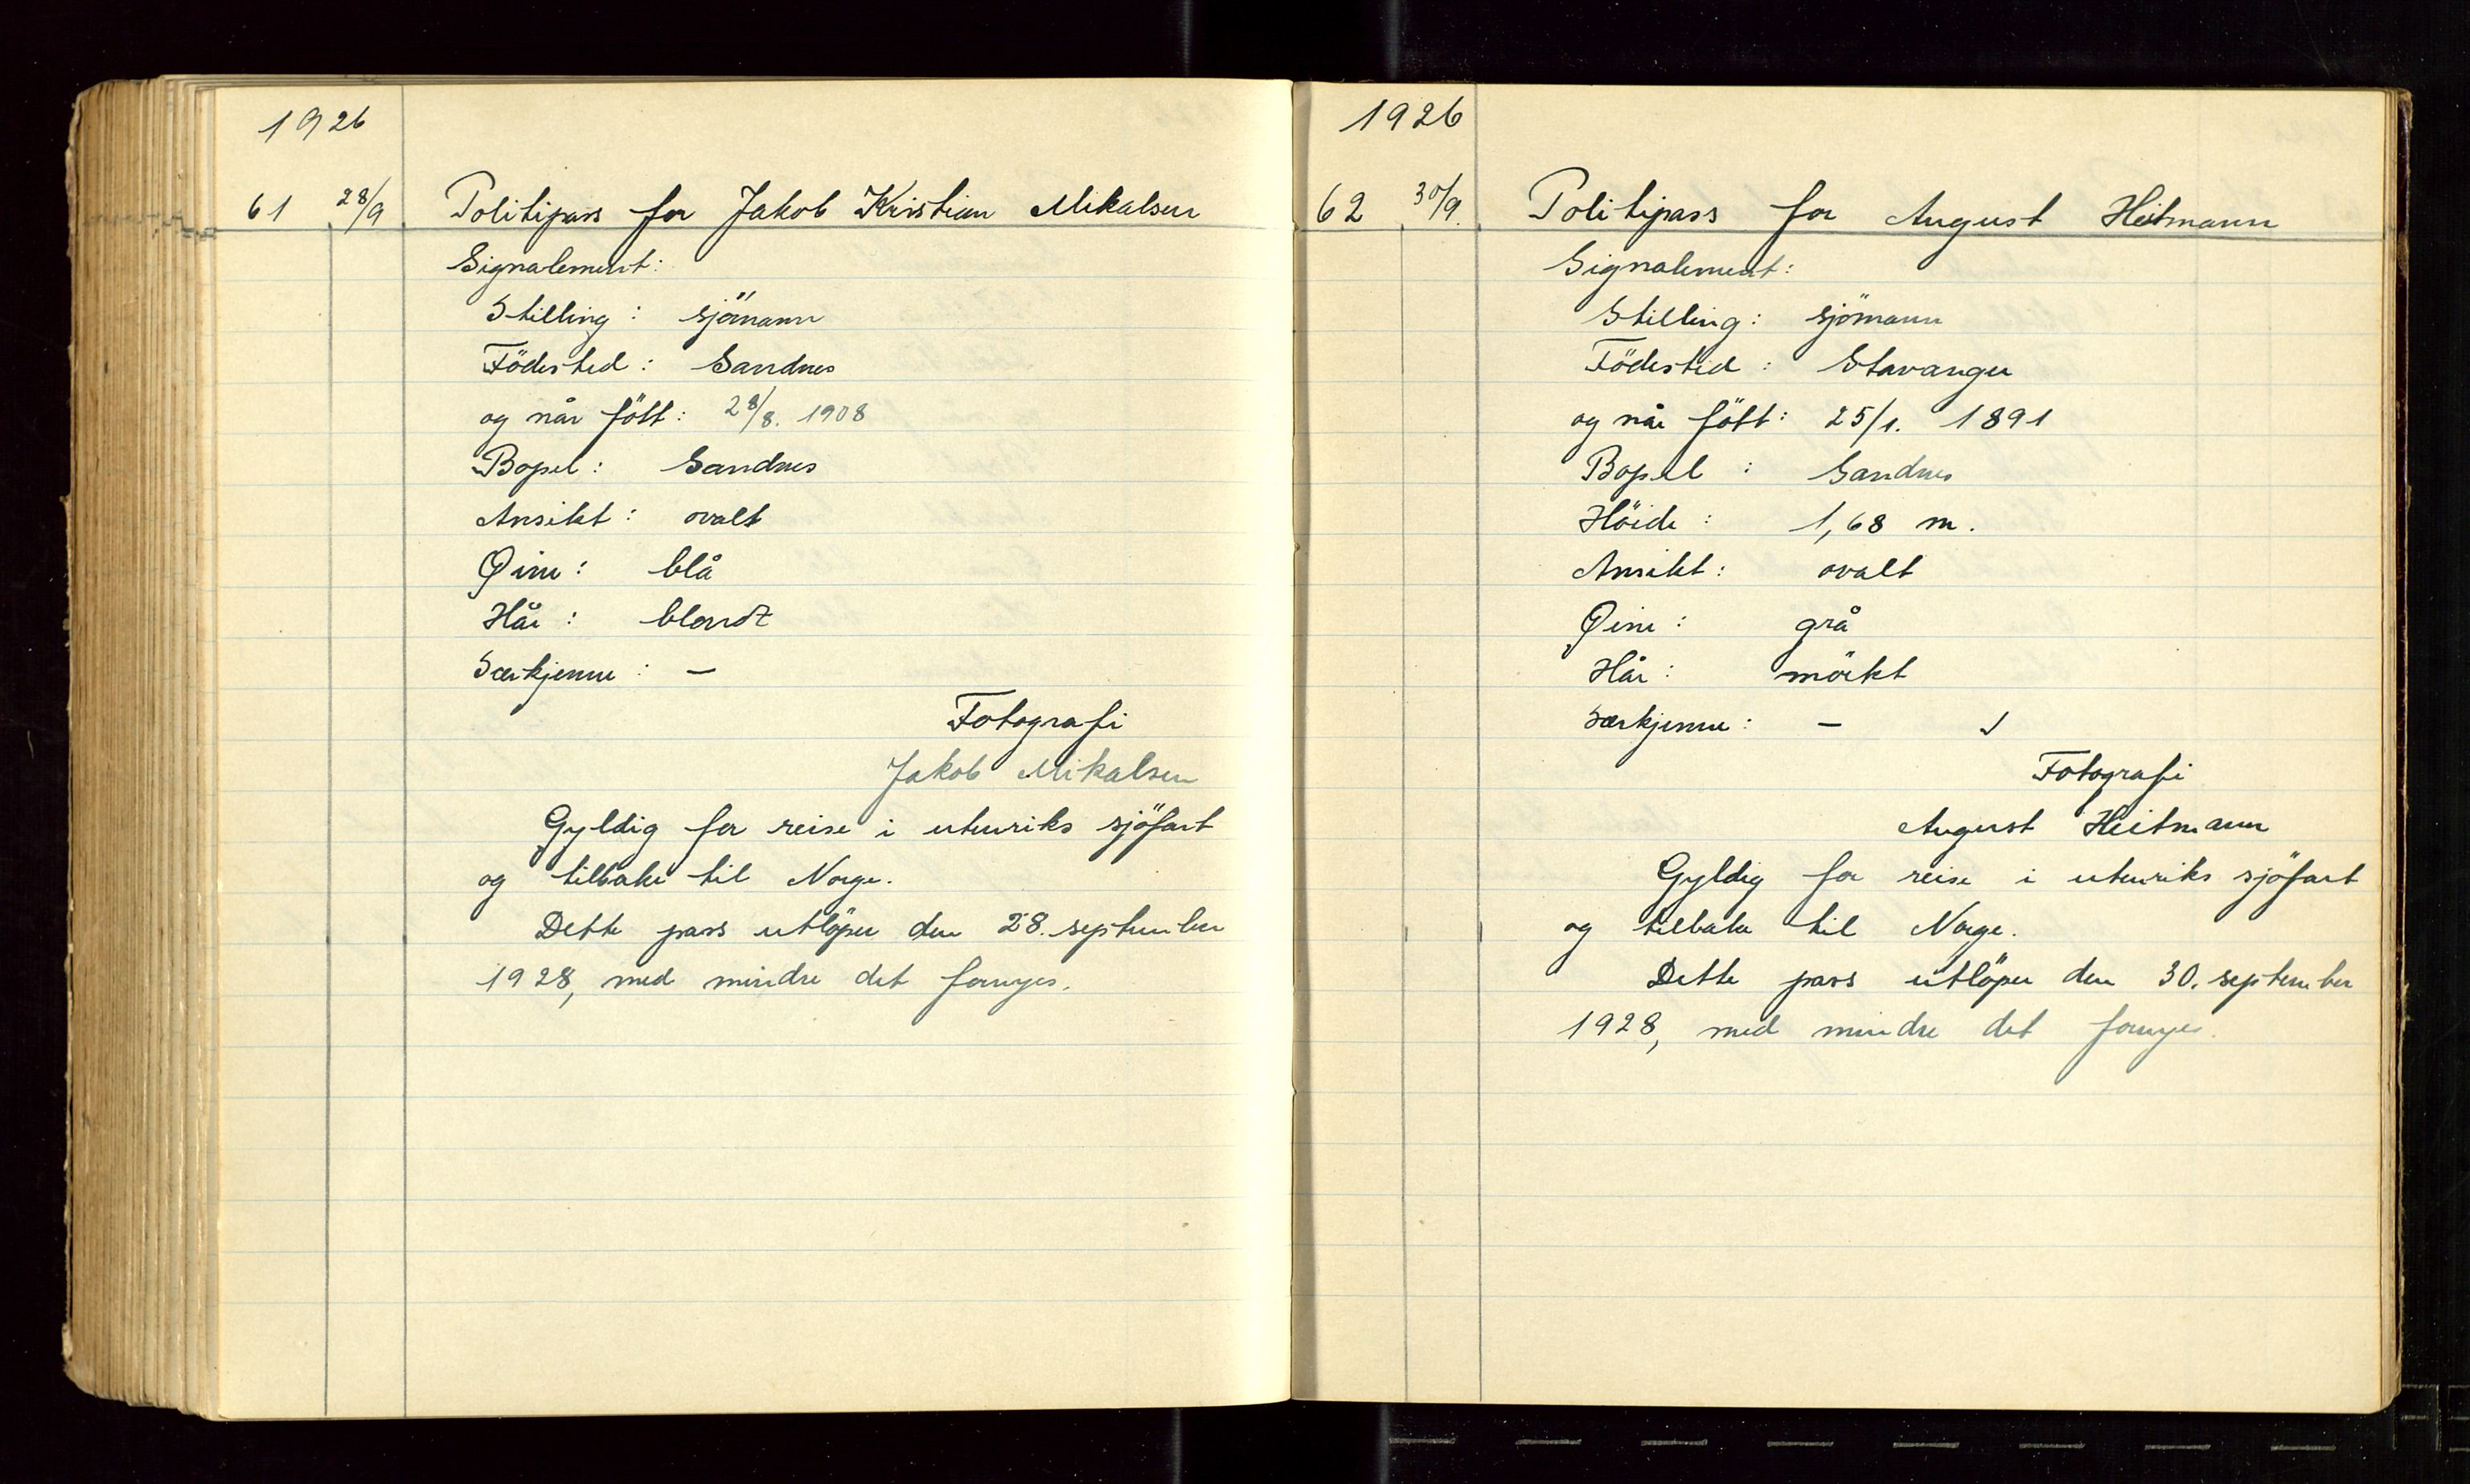 1926
61 28/9 Politipass for Jakob Kristian Mikalsen
Signalement:
Stilling: sjömann
Födested: Sandnes
og når født: 28/8. 1908
Bopel: Sandnes
Ansikt: ovalt
Øine: blå
Hår: blondt
Særkjenne: —
Fotografi
Jakob Mikalsen
Gyldig for reise i utenriks sjöfart
og tilbake til Norge.
Dette pass utlöper den 28. september
1928, med mindre det fornyes.
1926
62 30/9. Politipass for August Heitmann
Signalement:
Stilling: sjömann
Födested: Stavanger
og når födt: 25/1. 1891
Bopel: Sandnes
Höide: 1,68 m.
Ansikt: ovalt
Øine: grå
Hår: mörkt
Særkjenne: —
Fotografi
August Heitmann
Gyldig for reise i utenriks sjöfart
og tilbake til Norge.
Dette pass utlöper den 30. september
1928, med mindre det fornyes.